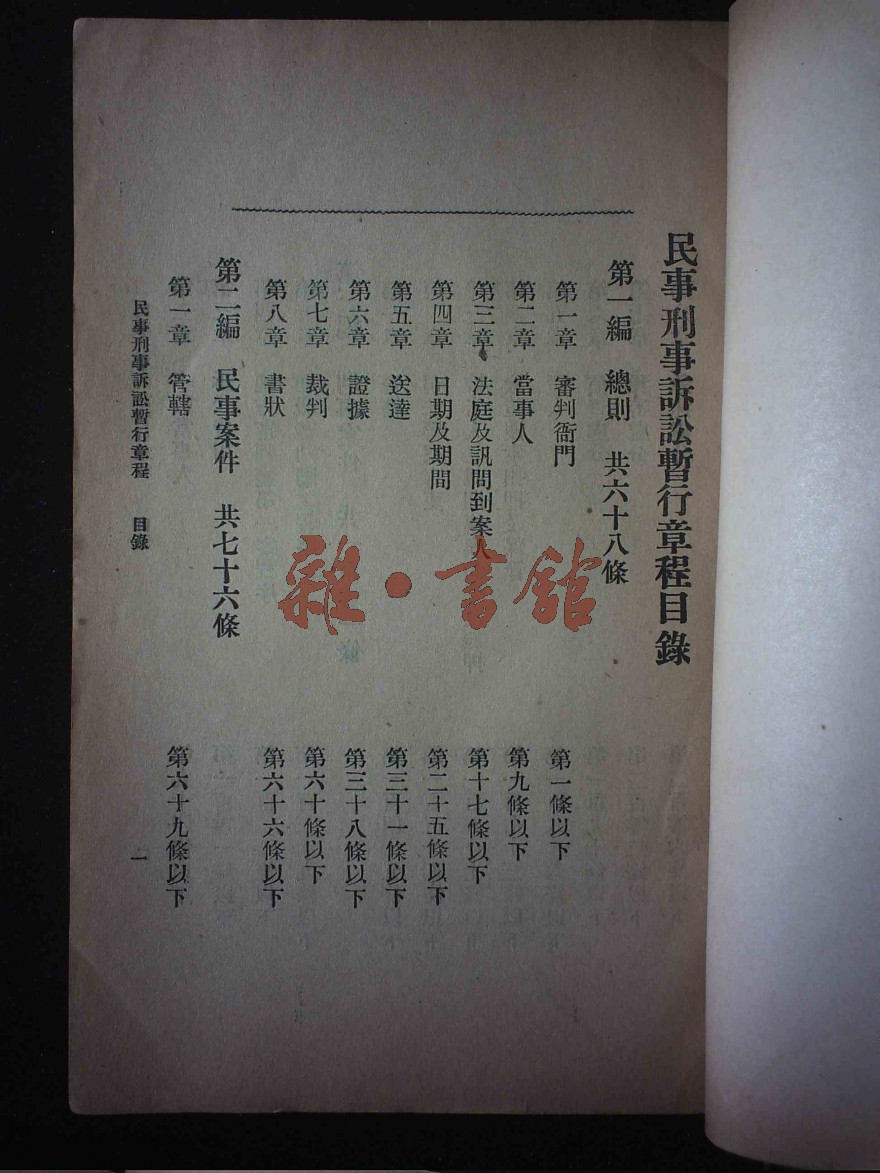 民事刑事訴訟暫行章程目錄
第一編 總則 共六十八條
第一章 審判衙門 第一條以下
第二章 當事人 第九條以下
第三章 法庭及訊問到案人 第十七條以下
第四章 日期及期間 第二十五條以下
第五章 送達 第三十一條以下
第六章 證據 第三十八條以下
第七章 裁判 第六十條以下
第八章 書狀 第六十六條以下
第二編 民事案件 共七十六條
第一章 管轄 第六十九條以下
民事刑事訴訟暫行章程 目錄 一
雜·書館